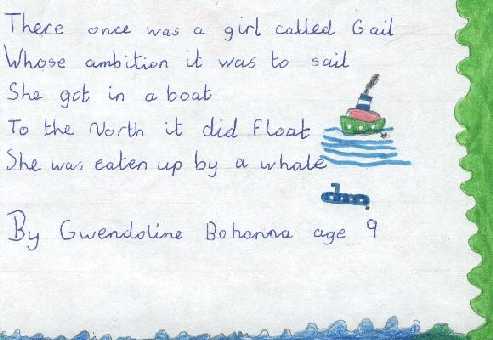 There once was a girl called Gail
Whose ambition it was to sail
She got in a boat
To the North it did Float
She was eaten up by a whale
By Gwendoline Bohanna age 9